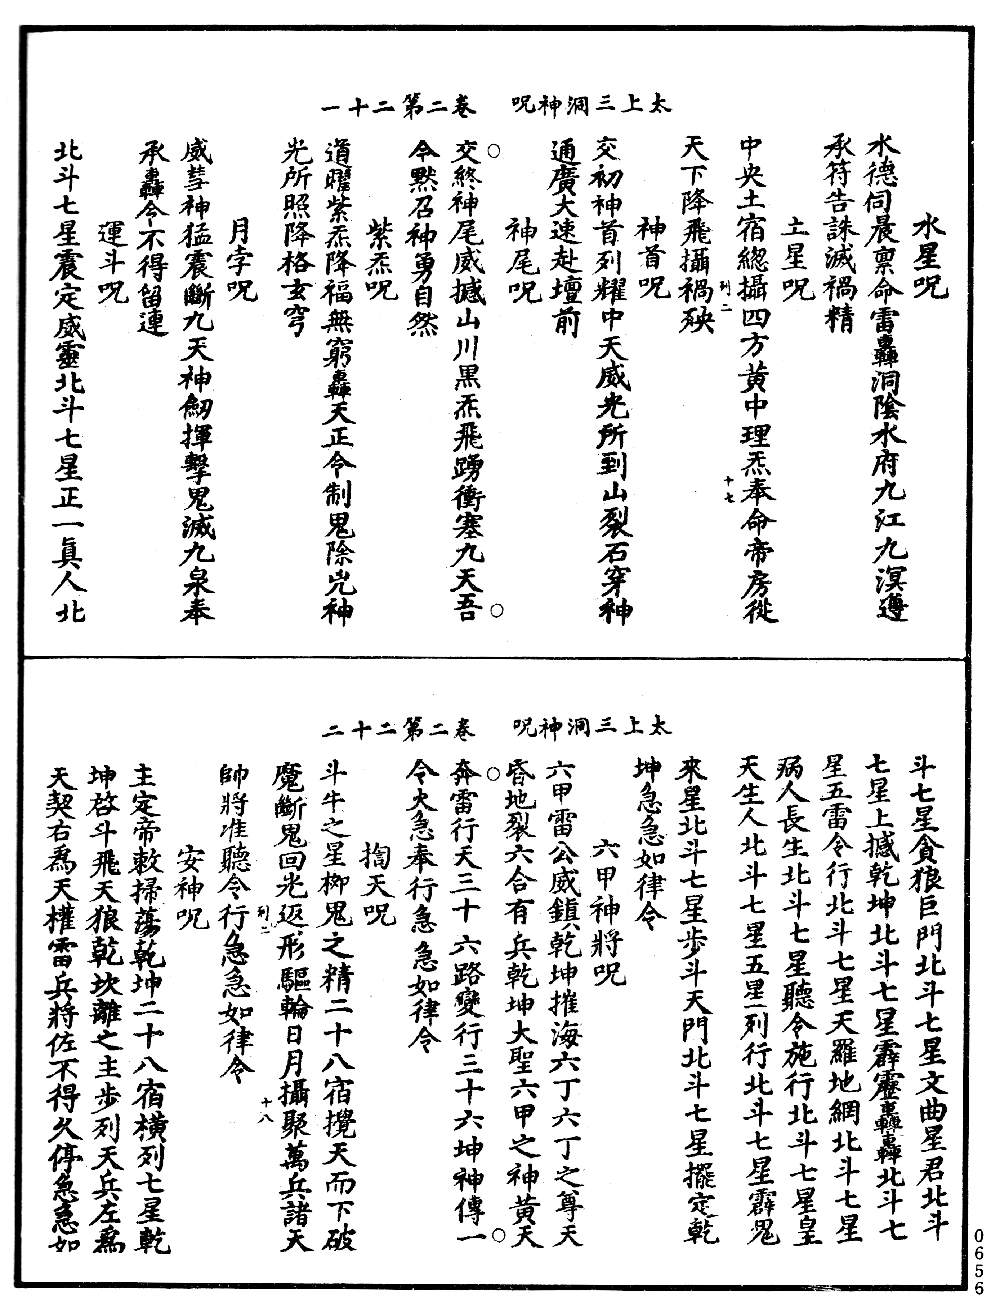 太上三洞神呪　卷二第二十一
水星呪
水德伺晨禀命雷轟洞陰水府九江九溟遵
承符告誅滅禍精
土星呪
中央土宿緫攝四方黃中理炁奉命帝房從
天下降飛攝禍殃
列二
十七
神首呪
交初神首列耀中天威光所到山裂石穿神
通廣大速赴壇前
神尾呪
交終神尾威撼山川黑炁飛踴衝塞九天吾
今黙召神勇自然
紫炁呪
道曜紫炁降福無窮轟天正令制鬼除兇神
光所照降格玄穹
月孛呪
威彗神猛震斷九天神劒揮擊鬼滅九泉奉
承轟令不得留連
運斗呪
北斗七星震定威靈北斗七星正一眞人北
太上三洞神呪　卷二第二十二
斗七星貪狼巨門北斗七星文曲星君北斗
七星上撼乾坤北斗七星霹靂轟轟北斗七
星五雷令行北斗七星天羅地網北斗七星
病人長生北斗七星聽令施行北斗七星皇
天生人北斗七星五星一列行北斗七星霹鬼
來星北斗七星步斗天門北斗七星擺定乾
坤急急如律令
六甲神將呪
六甲雷公威鎮乾坤摧海六丁六丁之尊天
昏地裂六合有兵乾坤大聖六甲之神黃天
奔雷行天三十六路變行三十六坤神傳一
令火急奉行急急如律令
搯天呪
斗牛之星柳鬼之精二十八宿攪天而下破
魔斷鬼回光返形驅輪日月攝聚萬兵諸天
帥將准聽令行急急如律令
列二
十八
安神呪
主定帝敕掃蕩乾坤二十八宿橫列七星乾
坤啓斗飛天狼乾坎離之主步列天兵左爲
天契右爲天權雷兵將佐不得久停急急如
0656